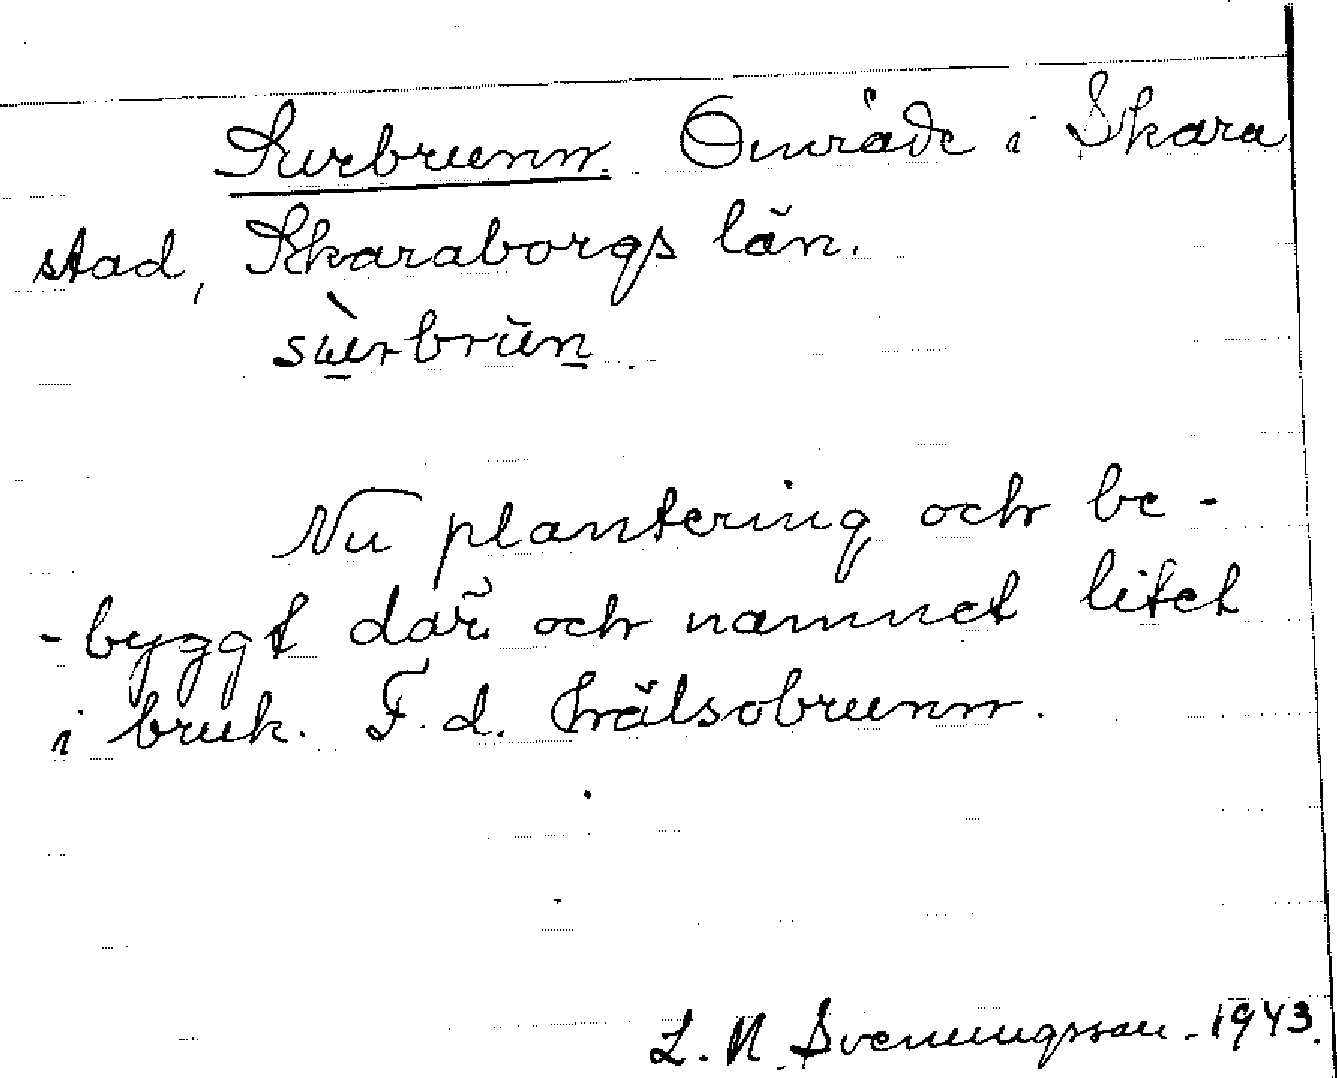 Surbrunn. Område i Skara
stad, Skaraborgs län.
Nu plantering och be-
-byggt där och namnet litet
i bruk. F.d. hälsobrunn.
L. N. Svenungsson. 1943.